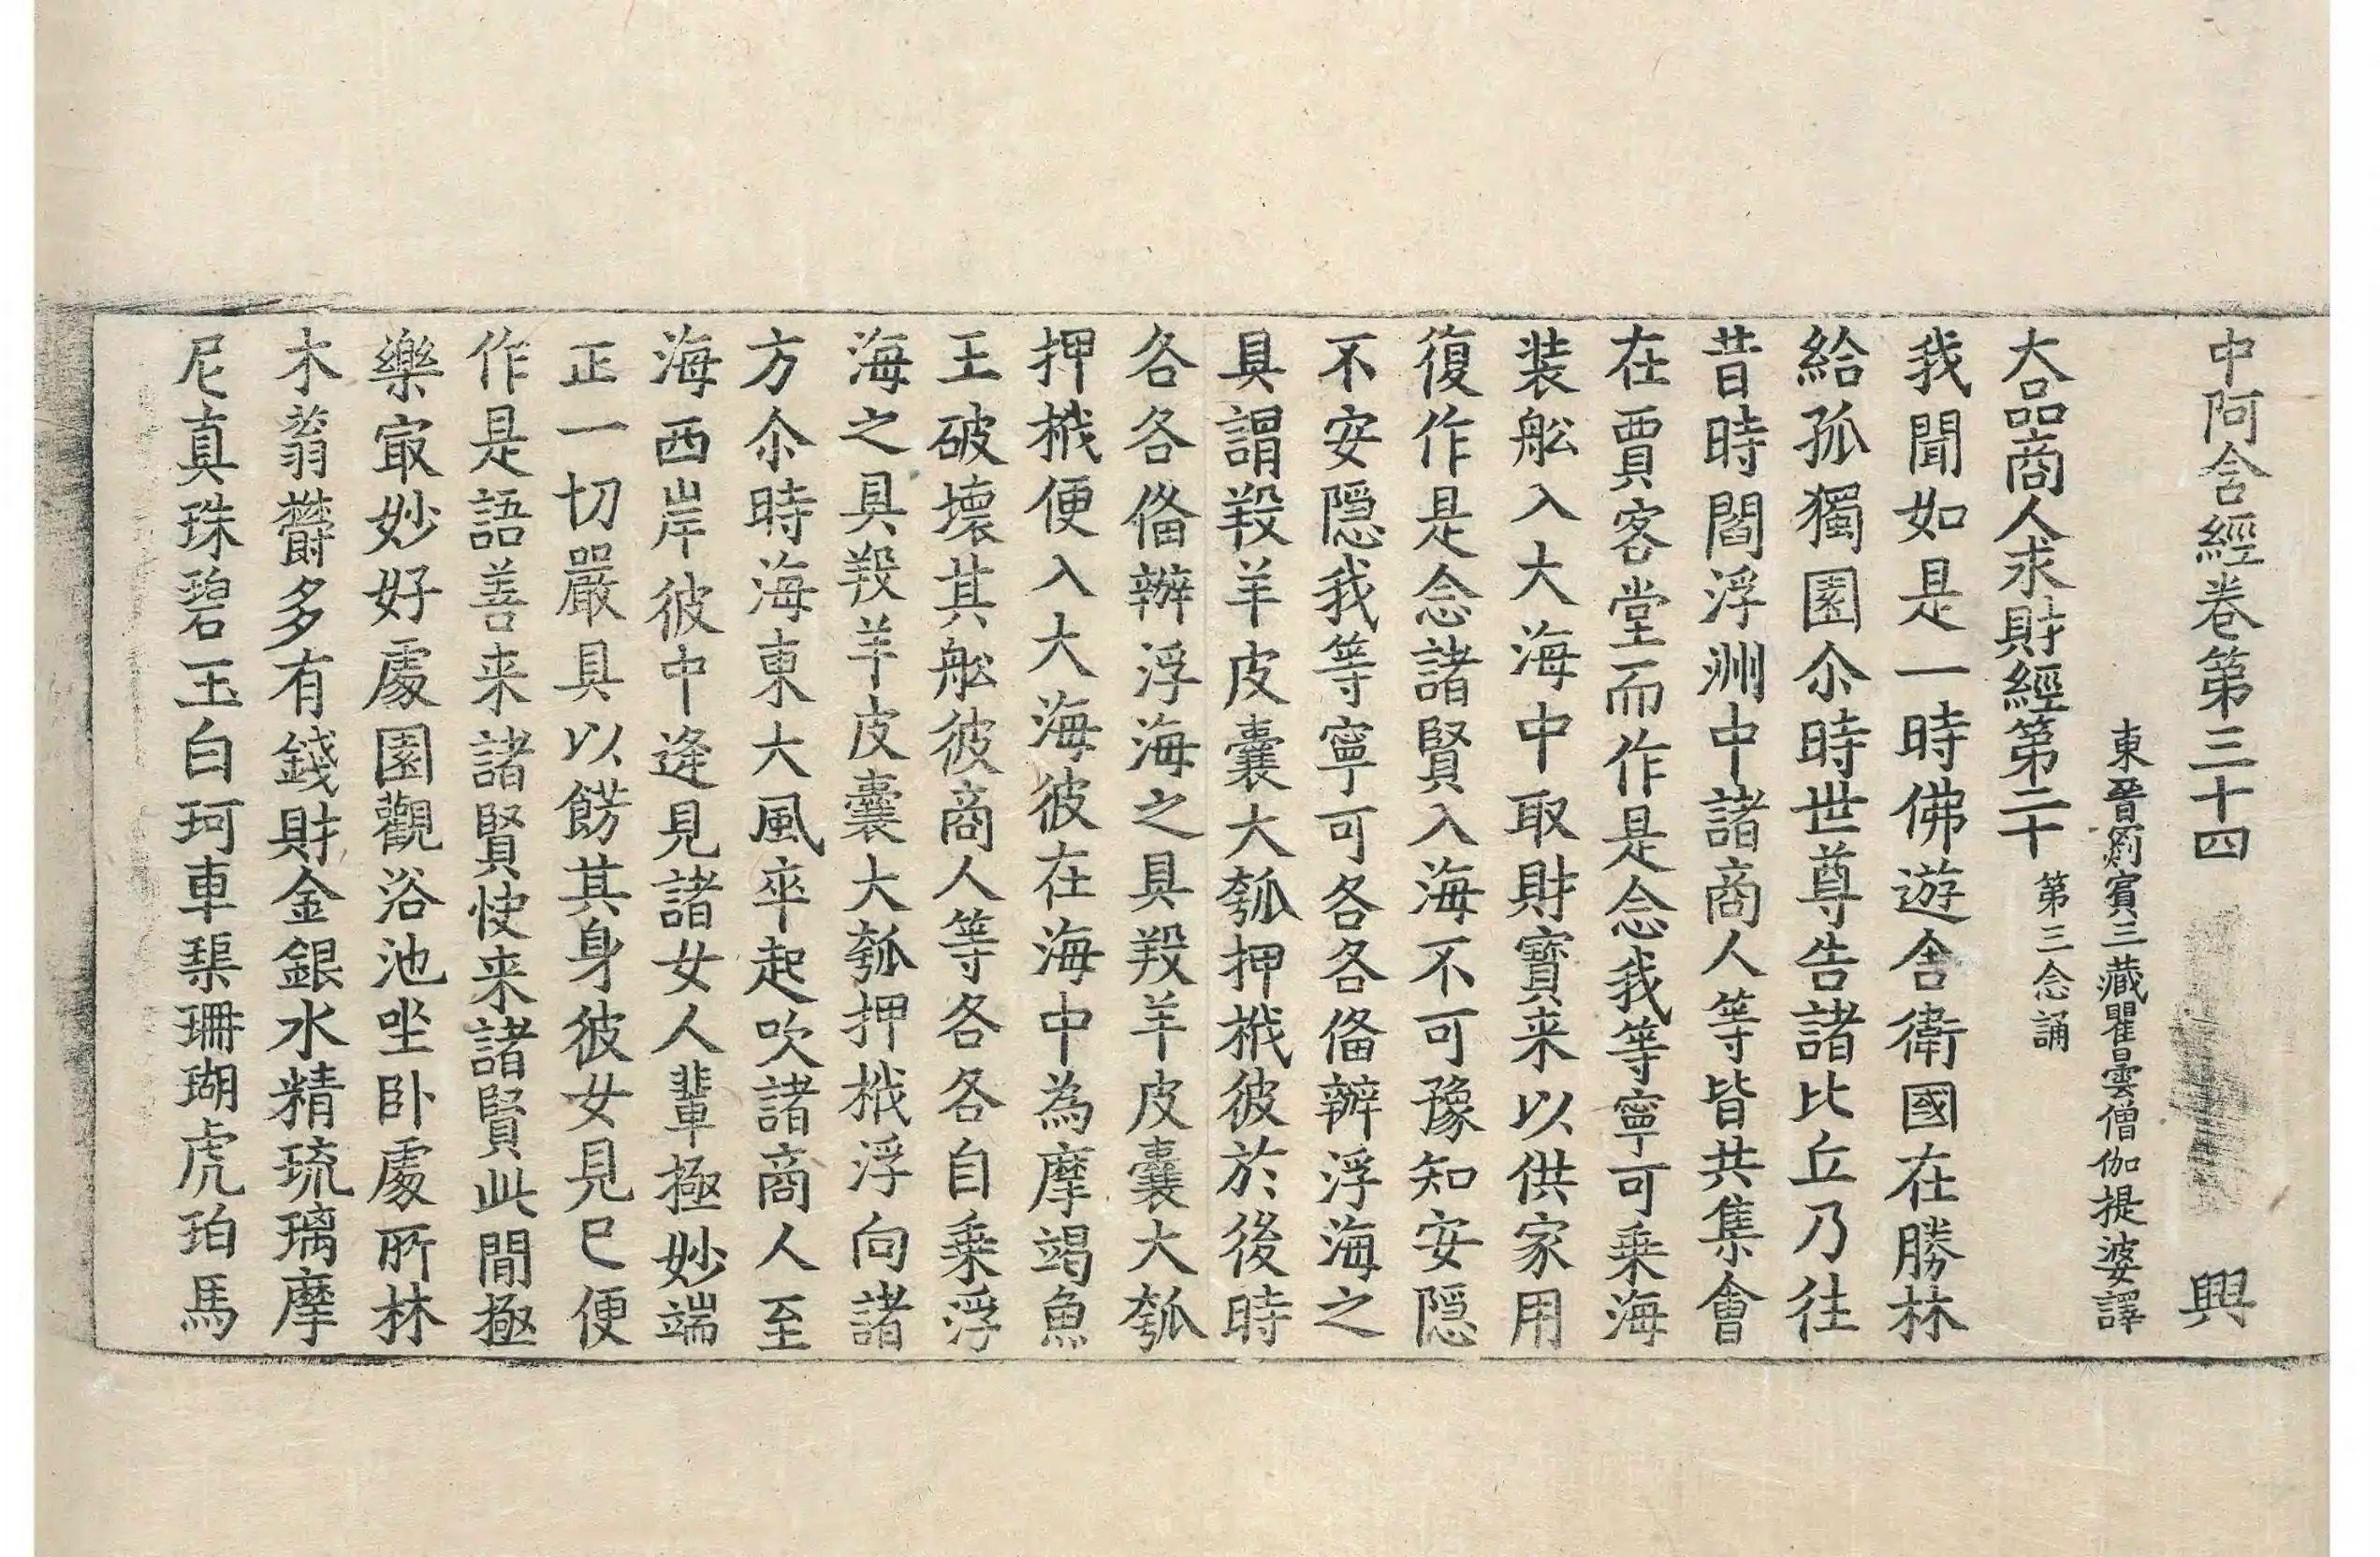 中阿含經卷第三十四 興
東晉罽賓三藏瞿曇僧伽提婆譯
大品商人求財經第二十 第三念誦
我聞如是一時佛遊舍衛國在勝林
給孤獨園尒時世尊告諸比丘乃往
昔時閻浮洲中諸商人等皆共集會
在賈客堂而作是念我等寧可乗海
装舩入大海中取財寶来以供家用
復作是念諸賢入海不可豫知安隠
不安隠我等寧可各各俻辦浮海之
具謂羖羊皮囊大瓠押栰彼於後時
各各俻辦浮海之具羖羊皮囊大瓠
押栰便入大海彼在海中為摩竭魚
王破壞其舩彼商人等各各自乗浮
海之具羖羊皮囊大瓠押栰浮向諸
方尒時海東大風卒起吹諸商人至
海西岸彼中逢見諸女人輩極妙端
正一切嚴具以餝其身彼女見已便
作是語善来諸賢快来諸賢此間極
樂冣妙好處園觀浴池坐卧處所林
木蓊欝多有錢財金銀水精琉璃摩
尼真珠碧玉白珂車𤦲珊瑚虎珀馬